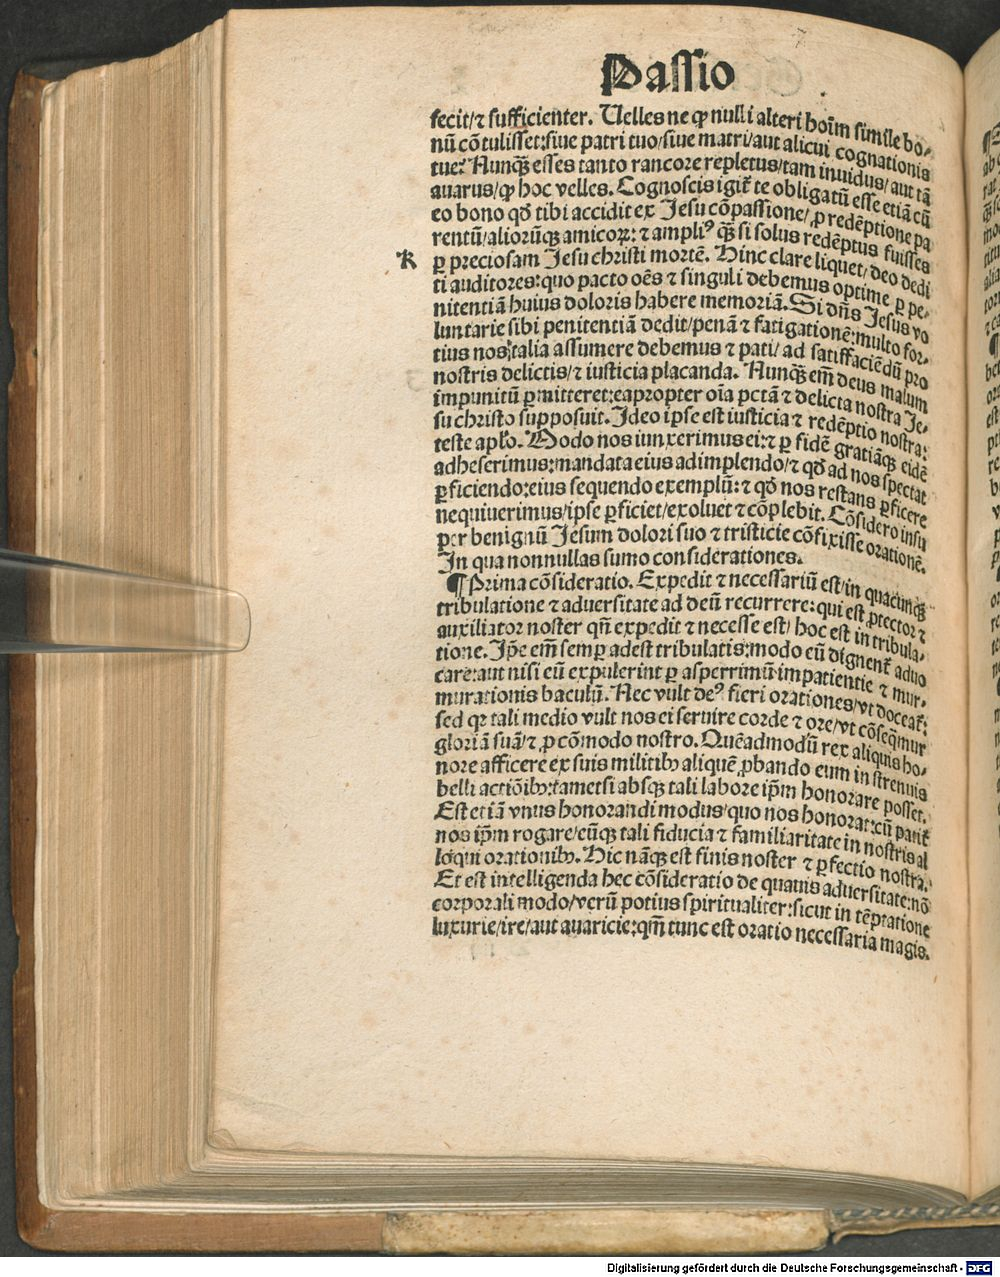 Passio
fecit/⁊ sufficienter. Velles ne ꝙ nulli alteri hoīm simile bo-
nū cōtulisset:siue patri tuo/siue matri/aut alicui cognationis
tue? Nunqꝫ esses tanto rancore repletus/tam inuidus/aut tā
auarus/ꝙ hoc velles. Cognoscis igit̃ te obligatū esse etiā cū
eo bono qđ tibi accidit ex Jesu cōpassione/ ꝓ redēptione pa
rentū/aliorūqꝫ amicoꝝ: ⁊ ampliꝰ qꝫ si solus redēptus fuisses
K
ꝑ preciosam Jesu christi mortē. Hinc clare liquet/deo dedi
ti auditores:quo pacto oēs ⁊ singuli debemus optime ꝑ pe-
nitentiā huius doloris habere memoriā. Si dn̄s Jesus vo
luntarie sibi penitentiā dedit/penā ⁊ fatigationē:multo for-
tius nos talia assumere debemus ⁊ pati/ ad satiffaciēdū pro
nostris delictis/⁊ iusticia placanda. Nunqꝫ em̄ deus malum
impunitū ꝑmitteret:eapropter oīa pctā ⁊ delicta nostra Je-
su christo supposuit. Ideo ipse est iusticia ⁊ redēptio nostra:
teste aplo. Modo nos iunxerimus ei:⁊ ꝑ fidē gratiāqꝫ eidē
adheserimus:mandata eius adimplendo/⁊ qđ ad nos spectat
ꝑficiendo:eius sequendo exemplū: ⁊ qđ nos restans ꝑficere
nequiuerimus/ipse ꝑficiet/exoluet ⁊ cōplebit. Cōsidero insu
per benignū Jesum dolori suo ⁊ tristicie cōfixisse orationē.
In qua nonnullas sumo considerationes.
¶ Prima cōsideratio. Expedit ⁊ necessariū est/in quacunqꝫ
tribulatione ⁊ aduersitate ad deū recurrere: qui est ꝓtector ⁊
auxiliator noster qn̄ expedit ⁊ necesse est/ hoc est in tribula-
tione. Ip̄e em̄ semꝑ adest tribulatis:modo eū dignent̃ aduo
care:aut nisi eū expulerint ꝑ asperrimū impatientie ⁊ mur-
murationis baculū. Nec vult deꝰ fieri orationes/vt doceat̃:
sed qꝛ tali medio vult nos ei seruire corde ⁊ ore/vt cōseq̄mur
gloriā suā/⁊ ꝓ cōmodo nostro. Quēadmodū rex aliquis ho-
nore afficere ex suis militibꝫ aliquē ꝓbando eum in strenuis
belli actiōibꝫ:tametsi absqꝫ tali labore ip̄m honorare posset.
Est etiā vnus honorandi modus/quo nos honorat:cū patit̃
nos ip̄m rogare/eūqꝫ tali fiducia ⁊ familiaritate in nostris al
loqui orationibꝫ. Hic nāqꝫ est finis noster ⁊ ꝑfectio nostra.
Et est intelligenda hec cōsideratio de quauis aduersitate:nō
corporali modo/verū potius spiritualiter:sicut in tēptatione
luxurie/ire/aut auaricie:qm̄ tunc est oratio necessaria magis.
Digitalisierung gefördert durch die Deutsche Forschungsgemeinschaft - DFG